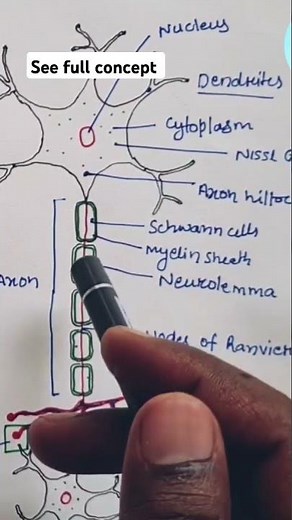 Nucleus
See full concept
Dendrites
Cytoplasm
Nissl G
Axon hilloc
Schwann cells
Myelin sheath
Neurolemma
Axon
Nodes of Ranvier